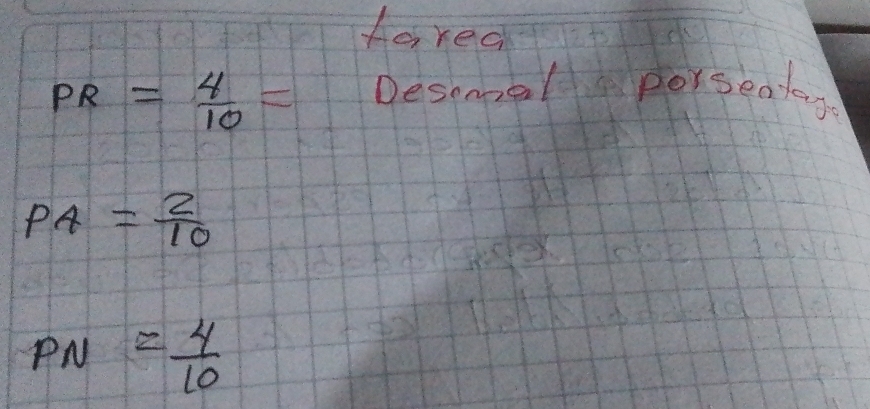 tarea
PR = 4/10 = Desimal porsentage
PA = 2/10
PN = 4/10